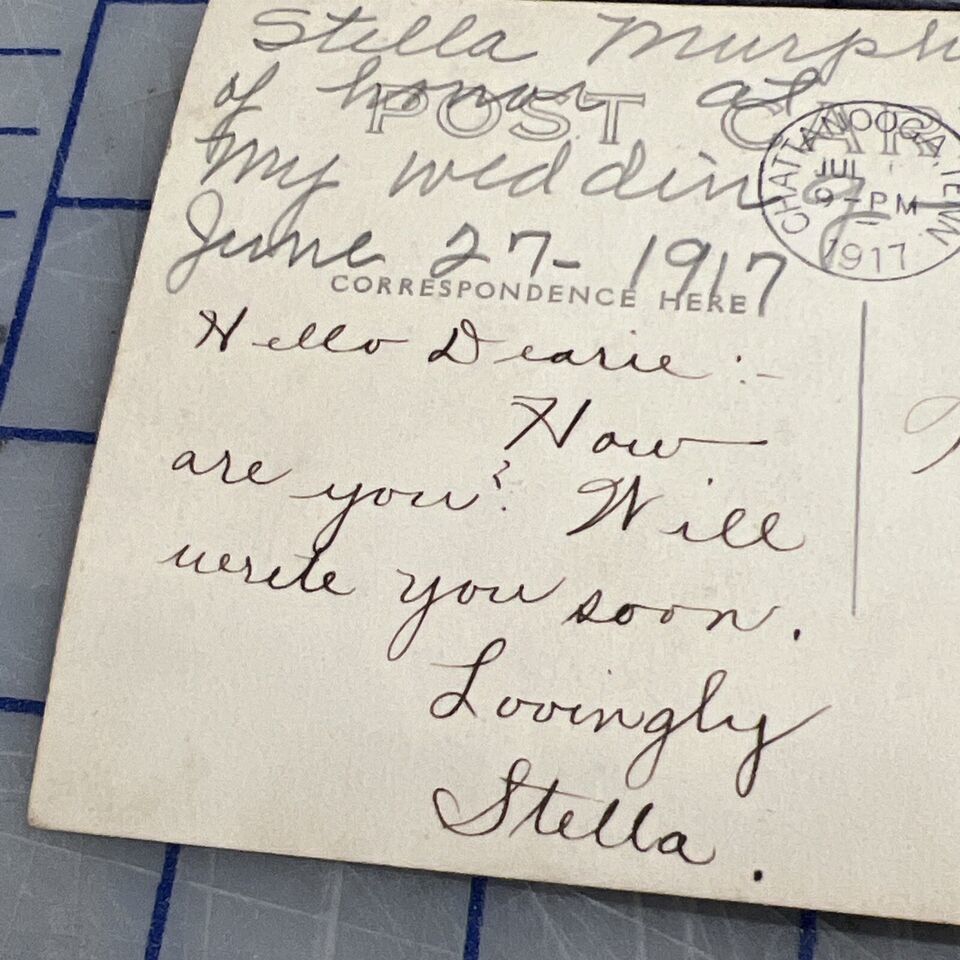 Stella Murph
of honor at
POST CAR
my wedding
CHATTANOOGA, TENN
JUL
9 - PM
1917
June 27 - 1917
CORRESPONDENCE HERE
Hello Dearie :-
How
are you? Will
write you soon.
Lovingly
Stella.